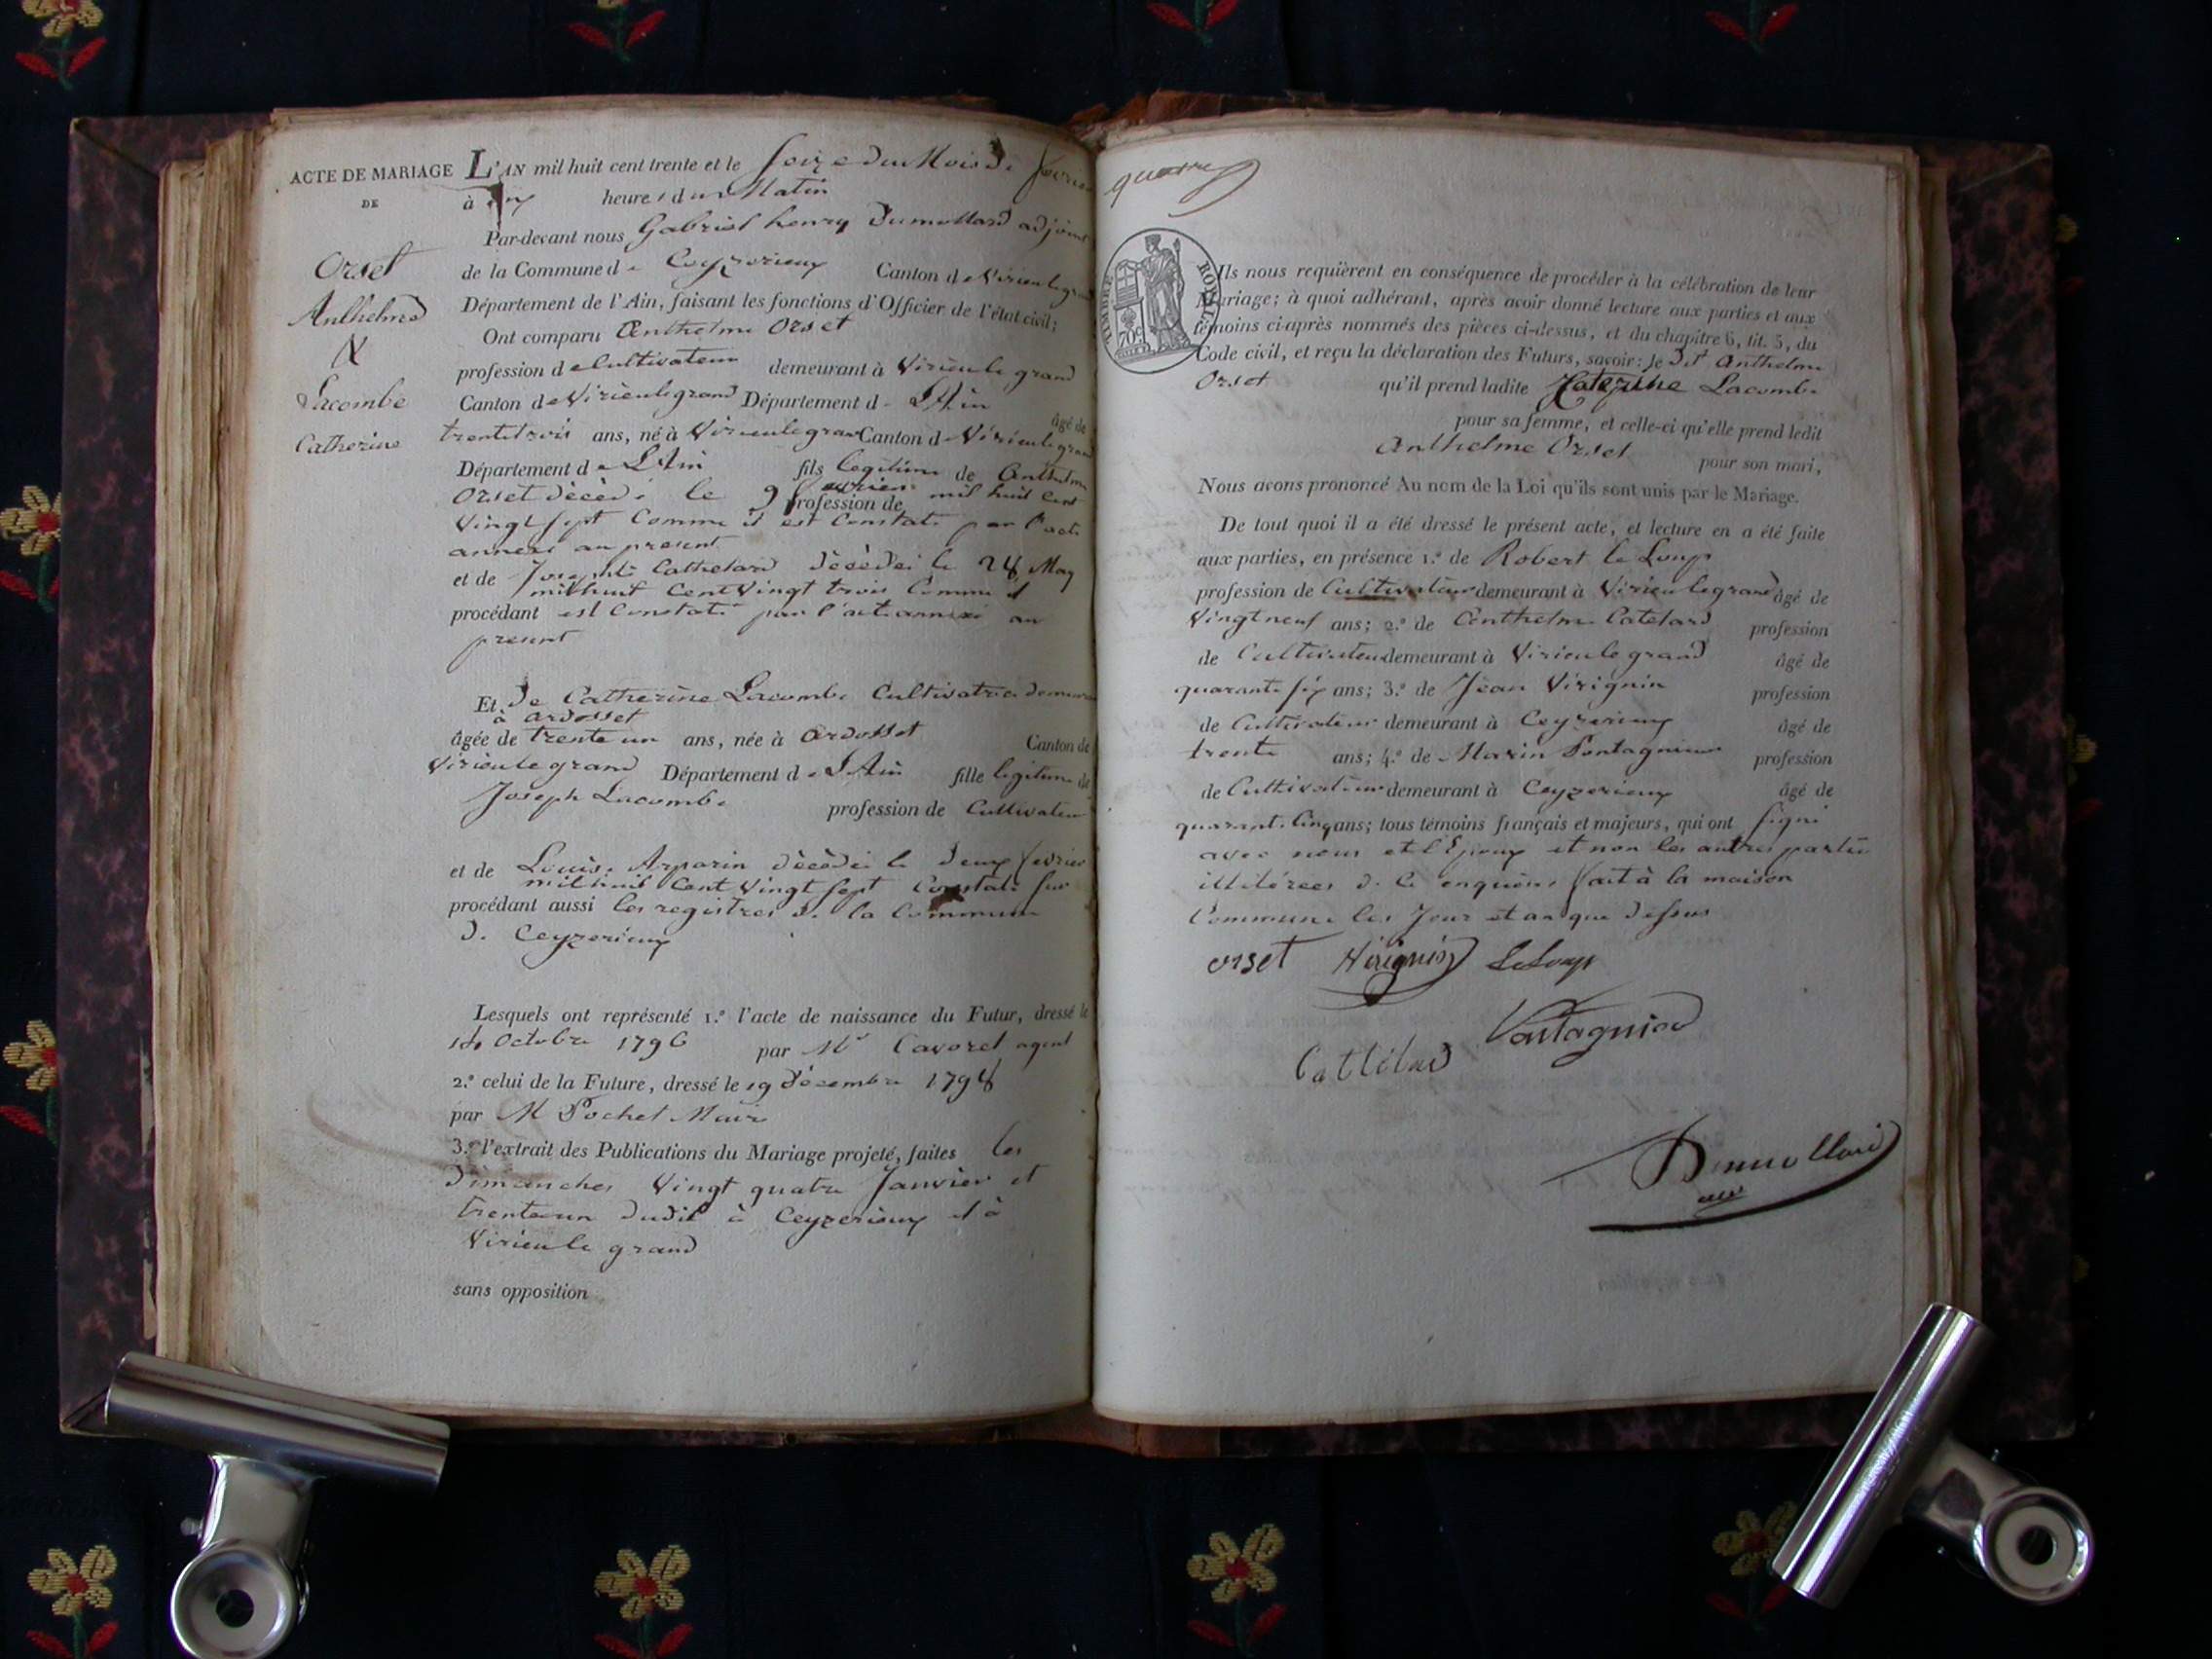 ACTE DE MARIAGE
DE
Orset
Anthelme
&
Lacombe
Catherine
L'AN mil huit cent trente et le seize du Mois de fevrier
à dix heures du Matin
Par-devant nous Gabriel henry Dumollard adjoint
de la Commune de Ceyzerieux Canton de Virieu le grand
Département de l'Ain, faisant les fonctions d'Officier de l'état civil;
Ont comparu Anthelme Orset
profession de Cultivateur demeurant à Virieu le grand
Canton de Virieu le grand Département de L'Ain âgé de
trente trois ans, né à Virieu le grand Canton de Virieu le grand
Département de L'Ain fils legitime de Anthelme
Orset décédé le 9 fevrier profession de mil huit cent
Vingt sept Comme il est Constaté par l'acte
annexé au present
et de Josephte Cathelard décédée le 28 May
mil huit Cent Vingt trois Comme il
procédant est Constaté par l'acte annexé au
present
Et de Catherine Lacombe Cultivatrice demeurant
à ardosset
âgée de trente un ans, née à ardosset Canton de
Virieu le grand Département de L'Ain fille legitime de
Joseph Lacombe profession de Cultivateur
et de Louise Arparin décédée le deux fevrier
mil huit Cent Vingt sept Constaté sur
procédant aussi les registres de la Commune
de Ceyzerieux
Lesquels ont représenté 1.º l'acte de naissance du Futur, dressé le
octobre 1796 par Mr Cavoret agent
2.º celui de la Future, dressé le 19 décembre 1798
par M Pochet Maire
3.º l'extrait des Publications du Mariage projeté, faites les
Dimanches Vingt quatre Janvier et
trente un dudit à Ceyzerieux et à
Virieu le grand
sans opposition
TIMBRE ROYAL
70c
Ils nous requièrent en conséquence de procéder à la célébration de leur
Mariage; à quoi adhérant, après avoir donné lecture aux parties et aux
témoins ci-après nommés des pièces ci-dessus, et du chapitre 6, tit. 5, du
Code civil, et reçu la déclaration des Futurs, savoir: le dit Anthelme
Orset qu'il prend ladite Caterine Lacombe
pour sa femme, et celle-ci qu'elle prend ledit
Anthelme Orset pour son mari,
Nous avons prononcé Au nom de la Loi qu'ils sont unis par le Mariage.
De tout quoi il a été dressé le présent acte, et lecture en a été faite
aux parties, en présence 1.º de Robert le Loup
profession de Cultivateur demeurant à Virieu le grand âgé de
Vingt neuf ans; 2.º de Anthelme Catelard profession
de Cultivateur demeurant à Virieu le grand âgé de
quarante six ans; 3.º de Jean Virignin profession
de Cultivateur demeurant à Ceyzerieux âgé de
trente ans; 4.º de Marin Pontagnier profession
de Cultivateur demeurant à Ceyzerieux âgé de
quarante Cinq ans; tous témoins français et majeurs, qui ont signé
avec nous et l'Epoux et non les autres parties
illitérées de ce enquises fait à la maison
Commune les Jour et an que dessus
orset Virignin LeLoup
Cattelard
Dumollard